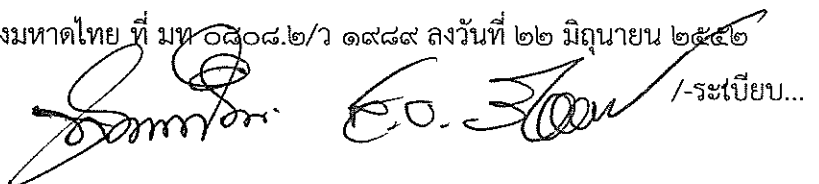 งมหาดไทย ที่ มท ๐๘๐๘.๒/ว ๑๙๘๙ ลงวันที่ ๒๒ มิถุนายน ๒๕๕๒
/-ระเบียบ...